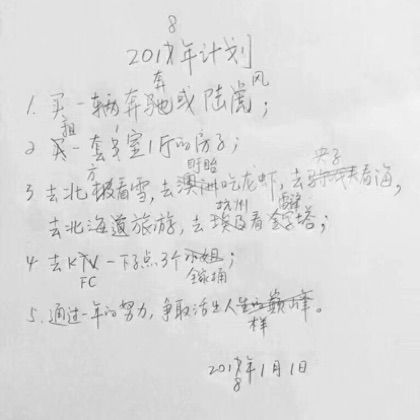 8
2017年计划
奔 风
1. 买一辆奔驰或陆虎；
租 1
2 买一套室1厅的房子；
方 盱眙
3 去北极看雪，去澳洲吃龙虾，去看海，
杭州 雷峰
去北海道旅游，去埃及看金字塔；
4 去KTV一下子点3个小姐；
FC 全家桶
5. 通过一年的努力，争取活出人生的巅峰。
样
2017年1月1日
8